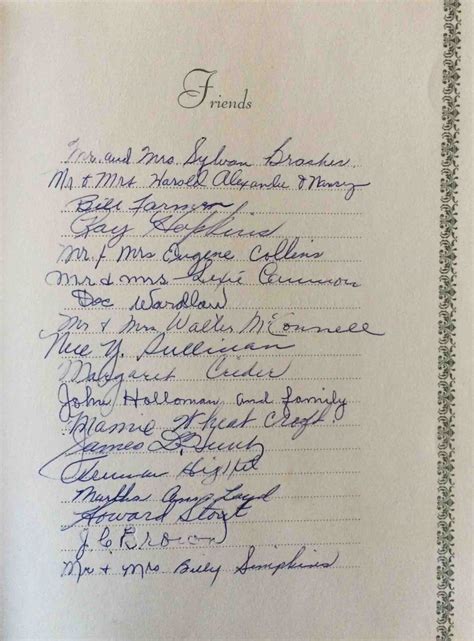 Friends
Mr. and Mrs. Sylvan Brasher
Mr & Mrs. Harold Alexander & Nancy
Bill Farmer
Ray Hopkins
Mr & Mrs Eugene Collins
Mr & Mrs Cannon
Doc Wardlaw
Mr & Mrs Walter McConnell
Y. Sullivan
Margaret Crider
John Holloman and family
Mamie Wheat Croft
James
Herman
Martha Ann Loyd
Howard Stout
J. C. Brown
Mr & Mrs Billy Simpkins